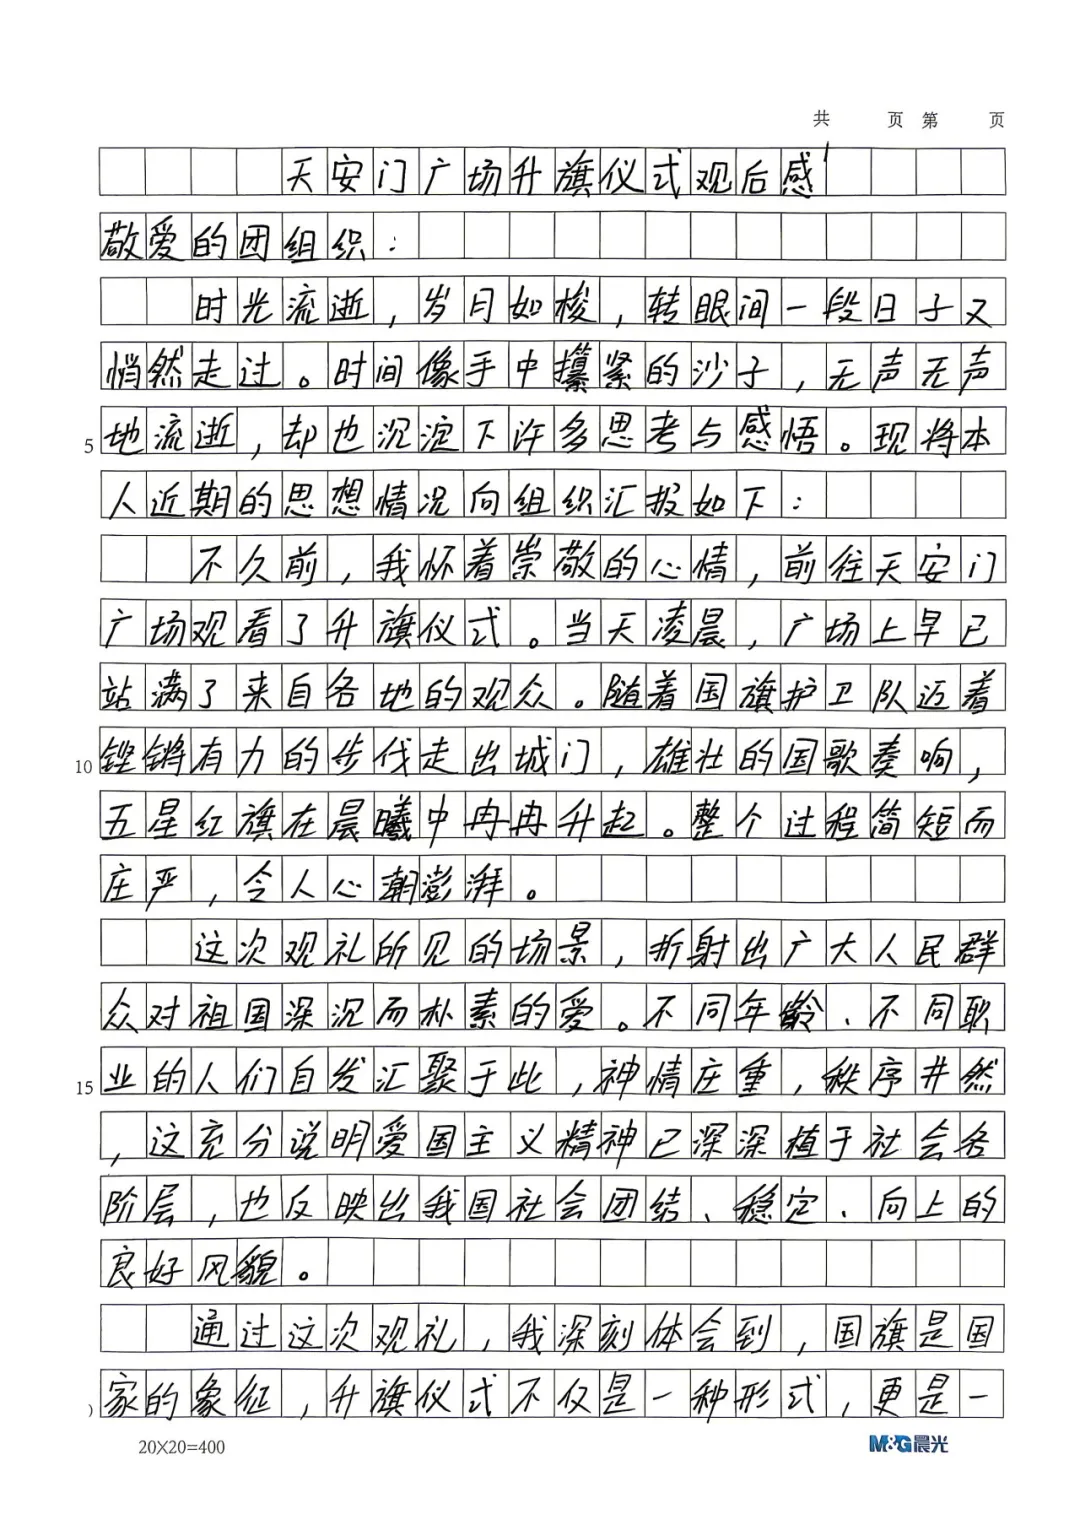 共 页 第 页
天安门广场升旗仪式观后感
敬爱的团组织：
时光流逝，岁月如梭，转眼间一段日子又
悄然走过。时间像手中攥紧的沙子，无声无声
5 地流逝，却也沉淀下许多思考与感悟。现将本
人近期的思想情况向组织汇报如下：
不久前，我怀着崇敬的心情，前往天安门
广场观看了升旗仪式。当天凌晨，广场上早已
站满了来自各地的观众。随着国旗护卫队迈着
10 铿锵有力的步伐走出城门，雄壮的国歌奏响，
五星红旗在晨曦中冉冉升起。整个过程简短而
庄严，令人心潮澎湃。
这次观礼所见的场景，折射出广大人民群
众对祖国深沉而朴素的爱。不同年龄、不同职
15 业的人们自发汇聚于此，神情庄重，秩序井然
，这充分说明爱国主义精神已深深植于社会各
阶层，也反映出我国社会团结、稳定、向上的
良好风貌。
通过这次观礼，我深刻体会到，国旗是国
) 家的象征，升旗仪式不仅是一种形式，更是一
20X20=400 M&G晨光